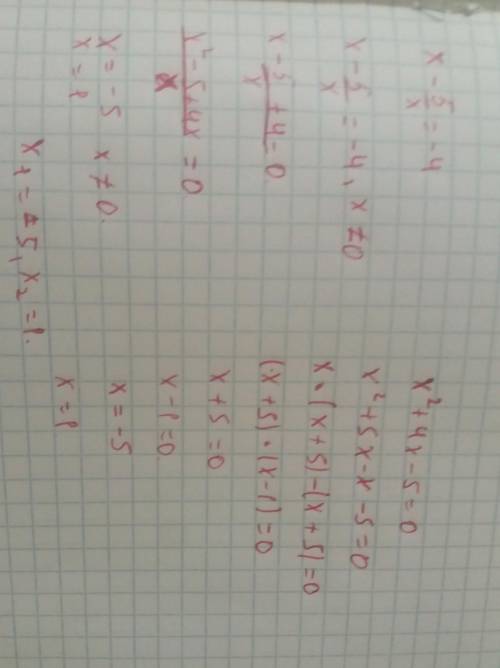 x - 5/x = -4
x - 5/x = -4, x ≠ 0
x - 5/x + 4 = 0
x² - 5 + 4x / x = 0
x = -5 x ≠ 0.
x = 1
x₁ = -5, x₂ = 1.
x² + 4x - 5 = 0
x² + 5x - x - 5 = 0
x • (x + 5) - (x + 5) = 0
(x + 5) • (x - 1) = 0
x + 5 = 0
x - 1 = 0
x = -5
x = 1